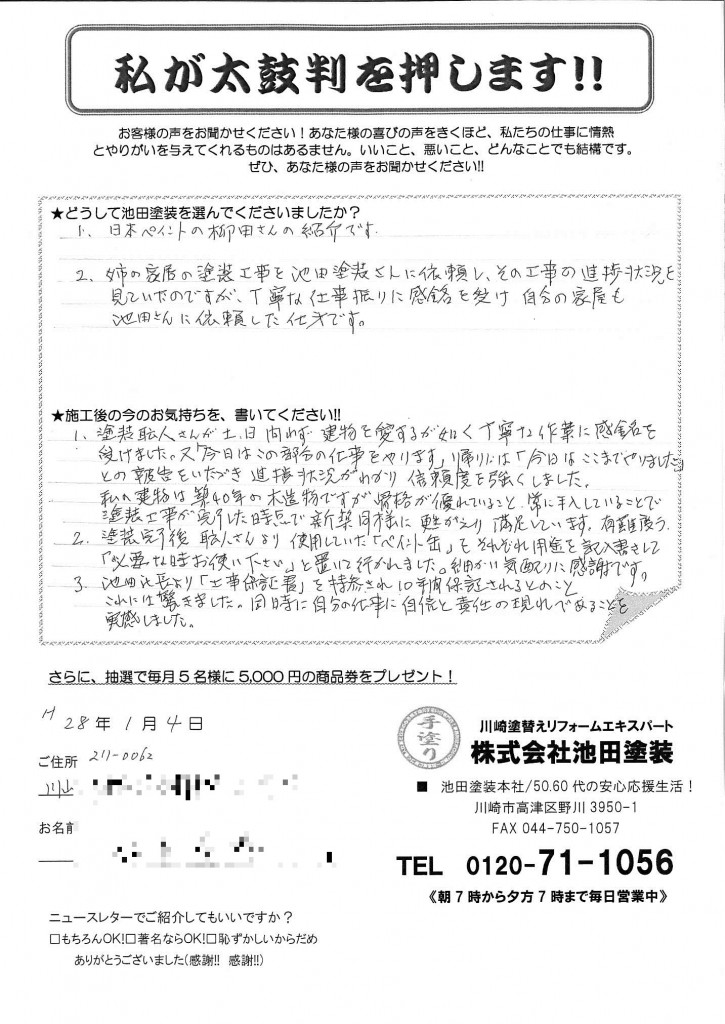 私が太鼓判を押します!!
お客様の声をお聞かせください！あなた様の喜びの声をきくほど、私たちの仕事に情熱
とやりがいを与えてくれるものはあるません。いいこと、悪いこと、どんなことでも結構です。
ぜひ、あなた様の声をお聞かせください!!
★どうして池田塗装を選んでくださいましたか？
1、日本ペイントの柳田さんの紹介です。
2、姉の家屋の塗装工事を池田塗装さんに依頼し、その工事の進捗状況を
見ていたのですが、丁寧な仕事振りに感銘を受け 自分の家屋も
池田さんに依頼した仕才です。
★施工後の今のお気持ちを、書いてください!!
1、塗装職人さんが土、日問わず 建物を愛するが如く丁寧な作業に感銘を
受けました。又「今日はこの部分の仕事をやります」帰りには「今日はここまでやりました」
との報告をいただき 進捗状況がわかり 信頼度を強くしました。
私の建物は築40年の木造物ですが骨格が優れていること、常に手入していることで
塗装工事が完了した時点で新築同様に甦がえり 満足しています。有難度う。
2、塗装完了後 職人さんより 使用していた「ペイント缶」をそれぞれ用途を記入書きして
「必要な時お使い下さい」と置いて行かれました。細かい気配りに感謝です。
3、池田社長より「工事保証書」を持参され10年間保証されるとのこと
これには驚きました。同時に自分の仕事に自信と責任の現れであることを
実感しました。
さらに、抽選で毎月5名様に5,000円の商品券をプレゼント！
H 28年 1月 4日
ご住所 211-0062
お名前
川崎塗替えリフォームエキスパート
手塗り 株式会社池田塗装
■ 池田塗装本社/50.60代の安心応援生活！
川崎市高津区野川 3950-1
FAX 044-750-1057
TEL 0120-71-1056
《朝7時から夕方7時まで毎日営業中》
ニュースレターでご紹介してもいいですか？
□もちろんOK!□著名ならOK!□恥ずかしいからだめ
ありがとうございました(感謝!! 感謝!!)